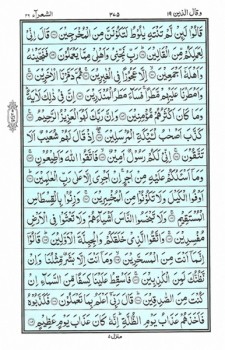 وقال الذين ١٩
٣٧٥
الشعرآء ٢٦
قَالُوْا لَىِٕنْ لَّمْ تَنْتَهِ يٰلُوْطُ لَتَكُوْنَنَّ مِنَ الْمُخْرَجِيْنَ ۝ قَالَ اِنِّيْ
لِعَمَلِكُمْ مِّنَ الْقَالِيْنَ ۝ رَبِّ نَجِّنِيْ وَاَهْلِيْ مِمَّا يَعْمَلُوْنَ ۝ فَنَجَّيْنٰهُ
وَاَهْلَهٗٓ اَجْمَعِيْنَ ۝ اِلَّا عَجُوْزًا فِي الْغٰبِرِيْنَ ۝ ثُمَّ دَمَّرْنَا الْاٰخَرِيْنَ ۝
وَاَمْطَرْنَا عَلَيْهِمْ مَّطَرًا فَسَآءَ مَطَرُ الْمُنْذَرِيْنَ ۝ اِنَّ فِيْ ذٰلِكَ لَاٰيَةً
وَمَا كَانَ اَكْثَرُهُمْ مُّؤْمِنِيْنَ ۝ وَاِنَّ رَبَّكَ لَهُوَ الْعَزِيْزُ الرَّحِيْمُ ۝
كَذَّبَ اَصْحٰبُ لْـَٔيْكَةِ الْمُرْسَلِيْنَ ۝ اِذْ قَالَ لَهُمْ شُعَيْبٌ اَلَا
تَتَّقُوْنَ ۝ اِنِّيْ لَكُمْ رَسُوْلٌ اَمِيْنٌ ۝ فَاتَّقُوا اللّٰهَ وَاَطِيْعُوْنِ ۝
وَمَآ اَسْـَٔلُكُمْ عَلَيْهِ مِنْ اَجْرٍ اِنْ اَجْرِيَ اِلَّا عَلٰى رَبِّ الْعٰلَمِيْنَ ۝
اَوْفُوا الْكَيْلَ وَلَا تَكُوْنُوْا مِنَ الْمُخْسِرِيْنَ ۝ وَزِنُوْا بِالْقِسْطَاسِ
الْمُسْتَقِيْمِ ۝ وَلَا تَبْخَسُوا النَّاسَ اَشْيَآءَهُمْ وَلَا تَعْثَوْا فِي الْاَرْضِ
مُفْسِدِيْنَ ۝ وَاتَّقُوا الَّذِيْ خَلَقَكُمْ وَالْجِبِلَّةَ الْاَوَّلِيْنَ ۝ قَالُوْٓا
اِنَّمَآ اَنْتَ مِنَ الْمُسَحَّرِيْنَ ۝ وَمَآ اَنْتَ اِلَّا بَشَرٌ مِّثْلُنَا وَاِنْ
نَّظُنُّكَ لَمِنَ الْكٰذِبِيْنَ ۝ فَاَسْقِطْ عَلَيْنَا كِسَفًا مِّنَ السَّمَآءِ اِنْ
كُنْتَ مِنَ الصّٰدِقِيْنَ ۝ قَالَ رَبِّيْٓ اَعْلَمُ بِمَا تَعْمَلُوْنَ ۝ فَكَذَّبُوْهُ
فَاَخَذَهُمْ عَذَابُ يَوْمِ الظُّلَّةِ اِنَّهٗ كَانَ عَذَابَ يَوْمٍ عَظِيْمٍ ۝
منزل ٥